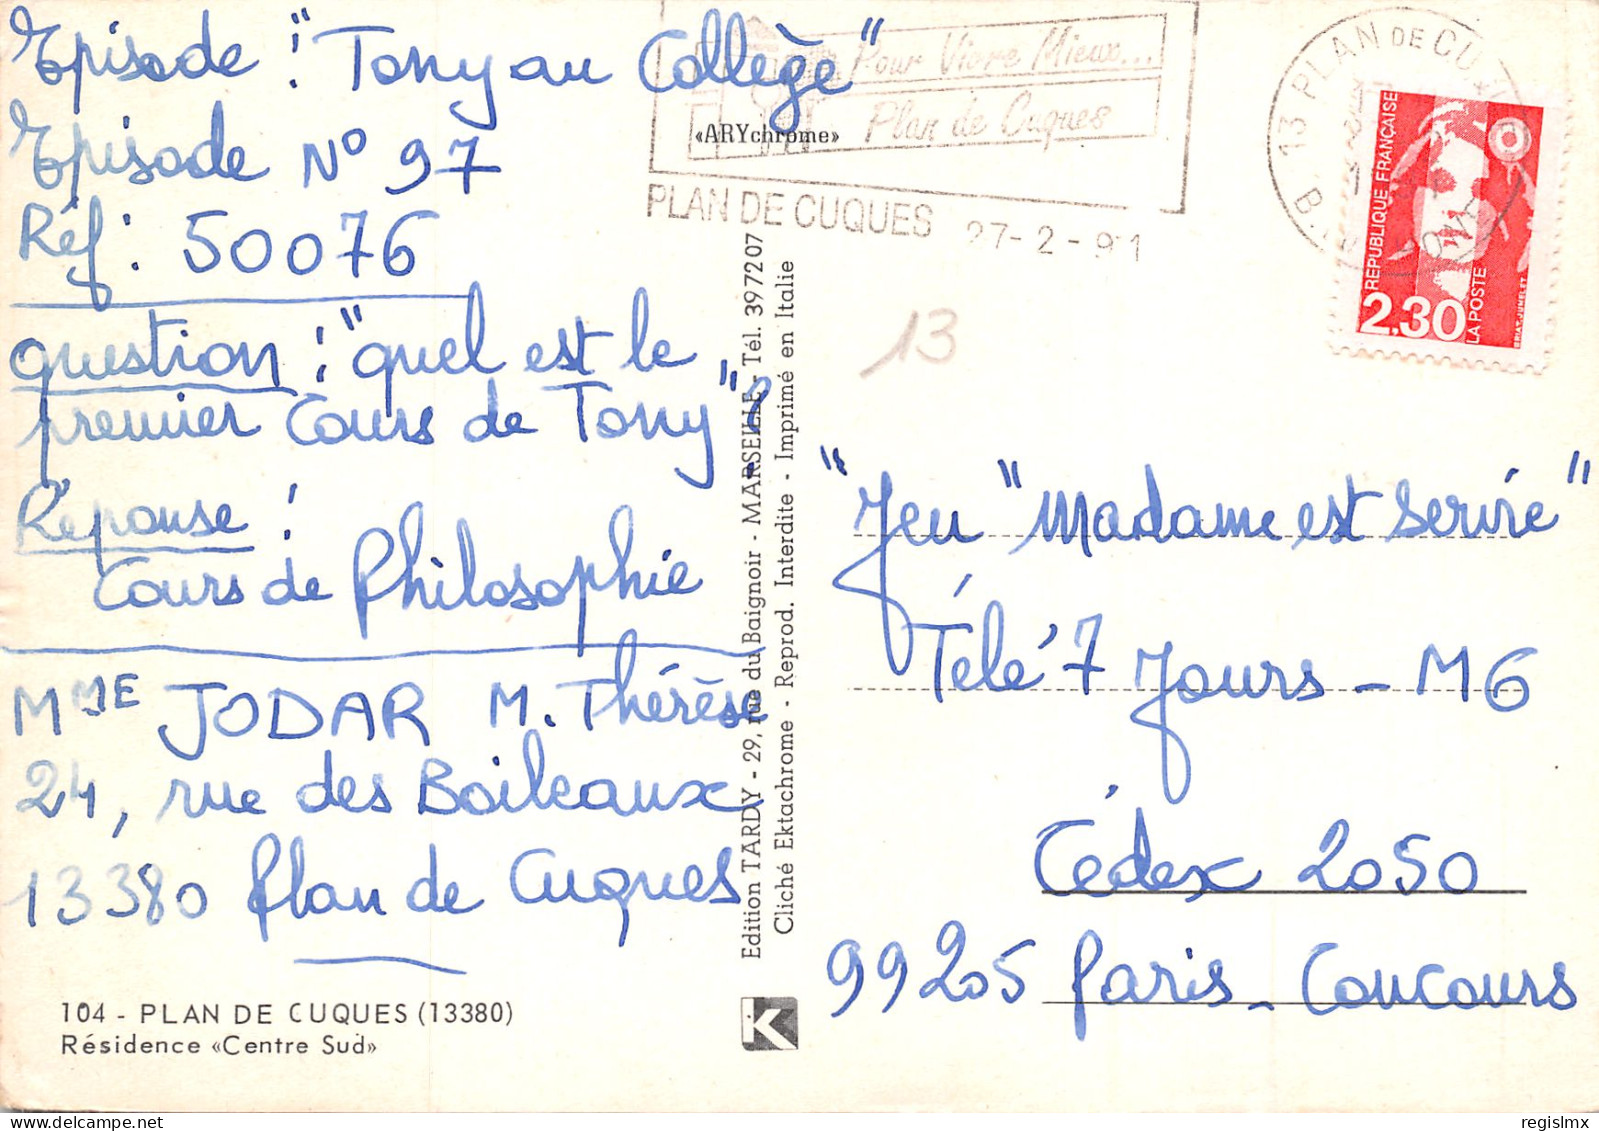 Episode : "Tony au Collège"
Episode N° 97
Réf : 50076
question : "quel est le
premier Cours de Tony" ?
Réponse :
Cours de Philosophie
Mme JODAR M. Thérèse
24, rue des Boileaux
13380 Plan de Cuques
104 - PLAN DE CUQUES (13380)
Résidence «Centre Sud»
Pour Vivre Mieux...
Plan de Cuques
«ARYchrome»
PLAN DE CUQUES 27-2-91
Edition TARDY - 29, rue du Baignoir - MARSEILLE - Tél. 397207
Cliché Ektachrome - Reprod. Interdite - Imprimé en Italie
K
13 PLAN DE CUQUES
REPUBLIQUE FRANÇAISE
2,30
LA POSTE
BRIAT-JUMELET
13
"Jeu "Madame est Servie"
Télé 7 Jours - M6
Cédex 2050
99205 Paris - Concours
regislmx